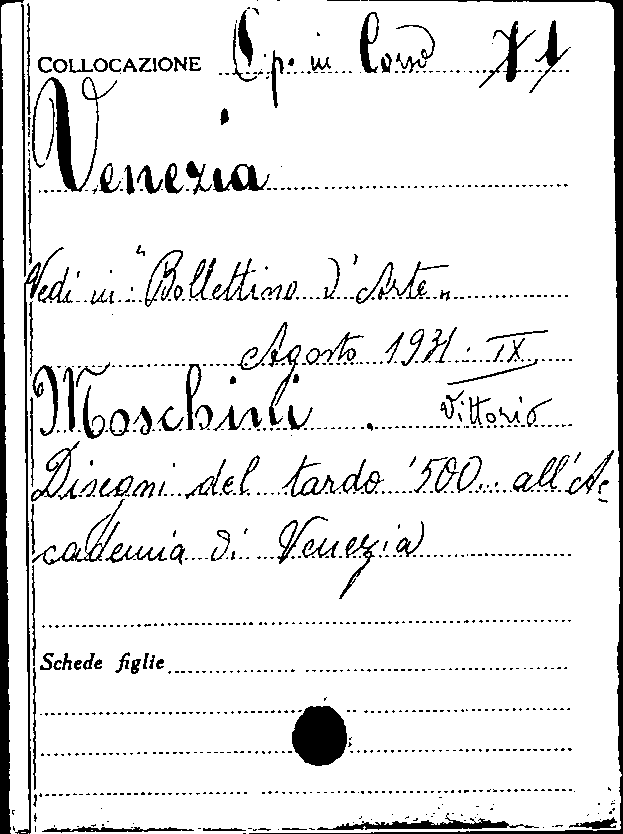 COLLOCAZIONE Op. in Corso X 1
Venezia
Vedi in "Bollettino d'Arte„
Agosto 1931. IX
Moschini. Vittorio
Disegni del tardo '500.. all'Ac
cademia di Venezia
Schede figlie